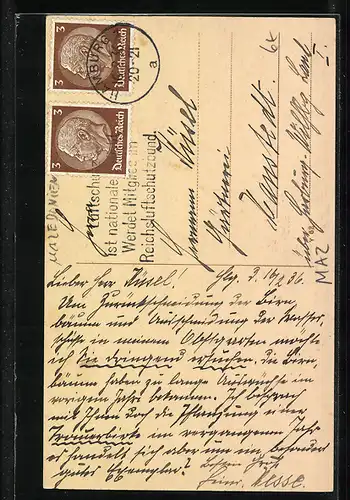 3
Deutsches Reich
3
Deutsches Reich
HAMBURG
20-21
a
Luftschutz
ist nationale
Werdet Mitglied im
Reichsluftschutzbund
Hermann Hüsel
Gärtnerei
Hanstedt.
über
MAZ
Lieber Herr Hüsel! Hbg. d. 16/2 36.
Um Zurückschneidung der Birn-
bäume und Ausschneidung der Wasser-
schosse in meinem Obstgarten möchte
ich Sie dringend ersuchen. Die Birn-
bäume haben zu lange Auswüchse im
vorigen Jahre bekommen. Ich besprach
mit Ihnen doch die Pflanzung einer
Trauerbirke im vergangenen Jahr
es handelt sich aber um ein besonders
gutes Exemplar? Besten Gruß